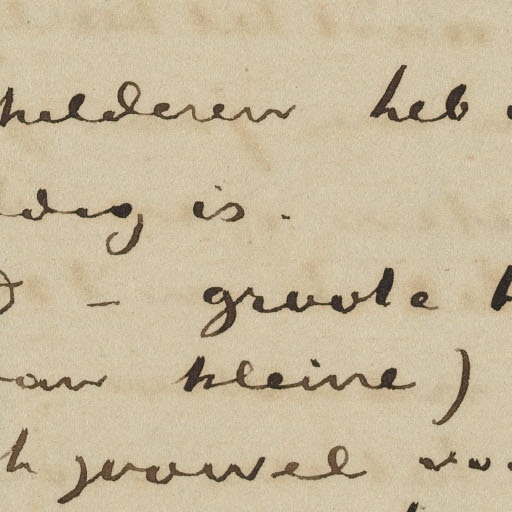 hilderen heb
dig is.
– groote
van kleine)
h zoowel voo